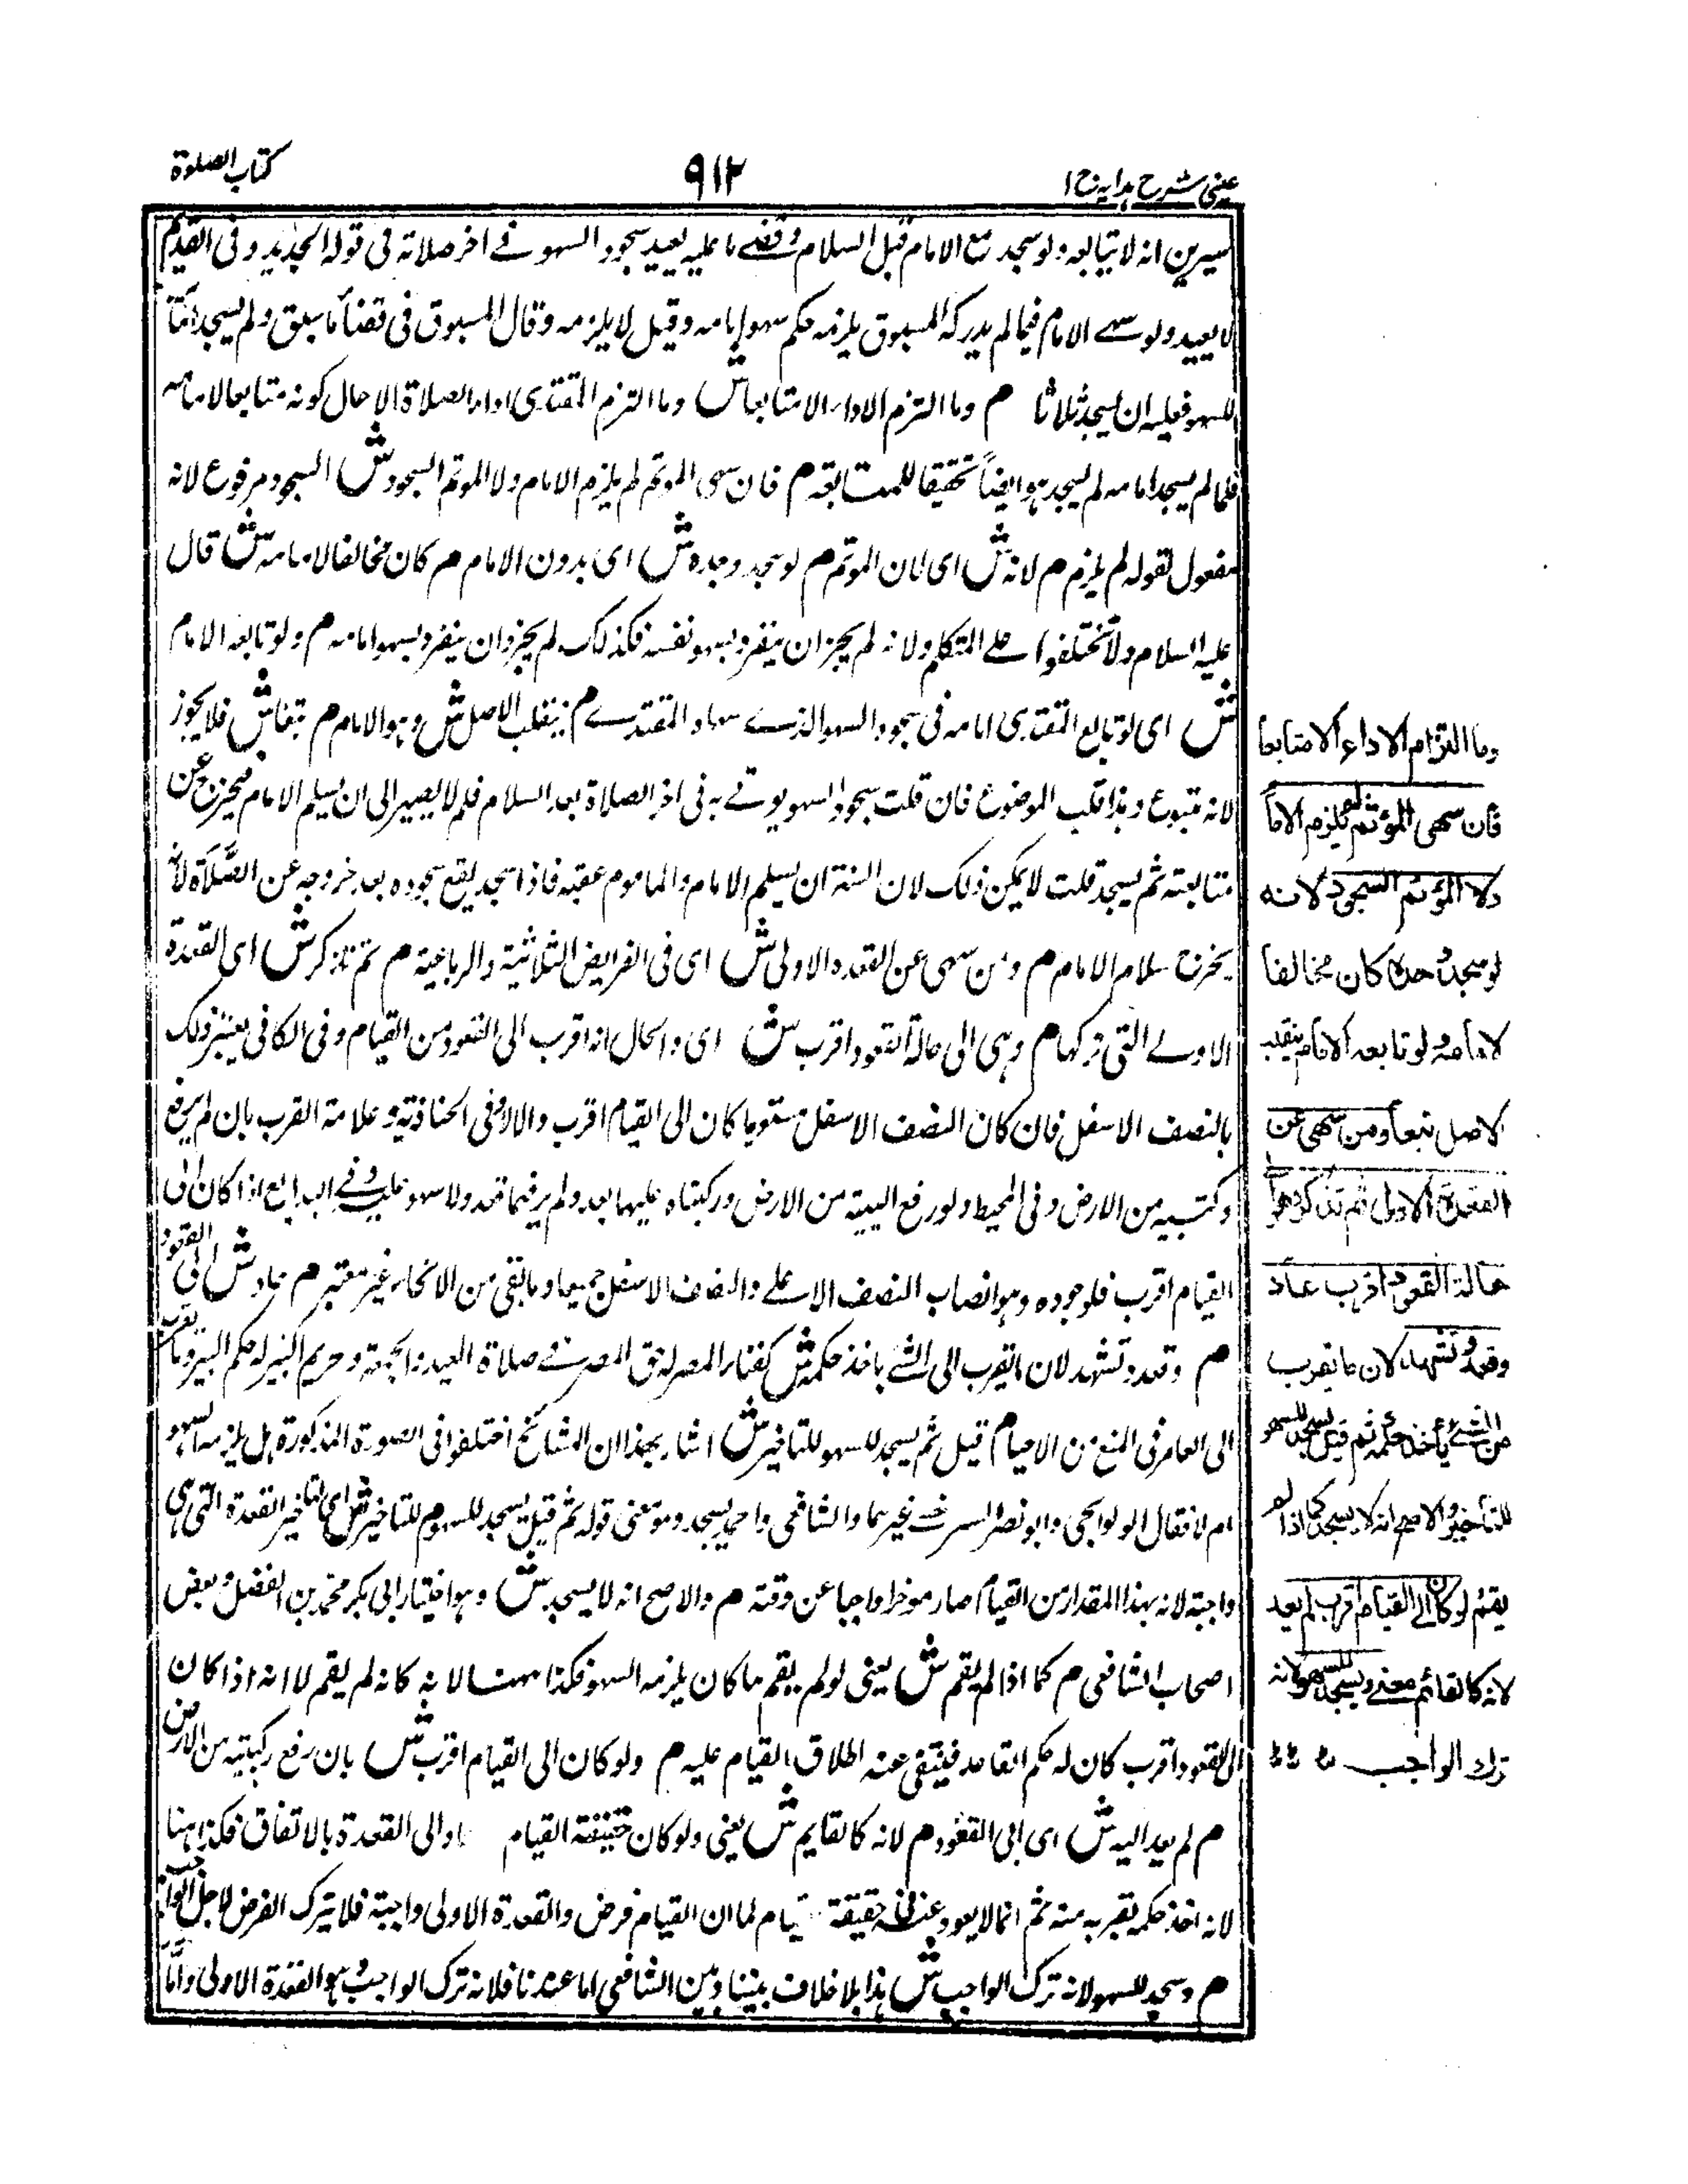 عينى شرح هدايه ج ١
٩١٢
كتاب الصلوة
سيرين انه لا يتابعه ولو سجد مع الامام قبل السلام وقضے ما عليه يعيد سجود السهو فے اخر صلاته فى قوله الجديد وفى القديم
لا يعيد ولو سهے الامام فيما لم يدركه المسبوق يلزمه حكم سهو امامه وقيل لا يلزمه وقال المسبوق فى قضأ ما سبق ولم يسجد
للسهو فعليه ان يسجد ثلاثا م وما التزم الاداء الا متابعا ش وما التزم المقتدى اداء الصلاة الا حال كونه متابعا لامامه
فلما لم يسجد امامه لم يسجد هو ايضاً تحقيقا للمتابعة م فان سهى الموتم لم يلزم الامام ولا الموتم السجود ش السجود مرفوع لانه
مفعول لقوله لم يلزم م لانه ش اى لان الموتم م لو سجد وحده ش اى بدون الامام م كان مخالفا لامامه ش قال
عليه السلام ولا تختلفوا علے امامكم ولانه لم يجز ان ينفرد بسهو نفسه فكذلك لم يجز ان ينفرد بسهو امامه م ولو تابعه الامام
ش اى لو تابع المقتدى امامه فى سجود السهو الذے سهاه المقتدے م ينقلب الاصل ش وهو الامام م تبعا ش فلا يجوز
لانه متبوع وهذا قلب الموضوع فان قلت سجود السهو يوتے به فى اخر الصلاة بعد السلام فلم لا يصير الى ان يسلم الامام فيخرج عن
متابعته ثم يسجد قلت لا يمكن ذلك لان السنة ان يسلم الامام والماموم عقبه فاذا سجد يقع سجوده بعد خروجه عن الصلاة لانه
يخرج بسلام الامام م ومن سهى عن القعدة الاولى ش اى فى الفرايض الثلاثية والرباعية م ثم تذكر ش اى القعدة
الاولے التى تركها م وهى الى حالة القعود اقرب ش اى والحال انه اقرب الى القعود من القيام وفى الكافى يعتبر ذلك
بالنصف الاسفل فان كان النصف الاسفل مستويا كان الى القيام اقرب والا لا وفى وعلامة القرب بان لم يرفع
ركبتيه من الارض وفى المحيط ولو رفع اليتيه من الارض وركبتاه عليها بعد ولم يرفعهما قعد ولا سهو عليه وفے اذا كان الى
القيام اقرب فلوجوده وهو انتصاب النصف الاعلے والنصف الاسفل جميعا وما بقى من الانحناء غير معتبر م عاد ش الى القعود
م وقعد وتشهد لان ما يقرب الى الشے ياخذ حكمه ش كفناء المصر له حق المصر فے صلاة العيد والجمعة وحريم البير له حكم البير وما يقرب
الى العامر فى المنع من الاحياء م قيل ثم يسجد للسهو للتاخير ش اشار بهذا ان المشائخ اختلفوا فى الصورة المذكورة هل يلزمه السهو
ام لا فقال الولوالجى وابو نصر السرخسے غيرهما والشافعى واحمد يسجد ومعنى قوله ثم قيل يسجد للسهو م للتاخير ش اى لتاخير القعدة التى هى
واجبة لانه بهذا المقدار من القيام صار موخرا واجبا عن وقته م والاصح انه لا يسجد ش وهو اختيار ابى بكر محمد بن الفضل وبعض
اصحاب الشافعى م كما اذا لم يقم ش يعنى لو لم يقم ما كان يلزمه السهو فكذا ههنا لانه كانه لم يقم لا انه اذا كان
الى القعود اقرب كان له حكم القاعد فينتفى عنه اطلاق القيام عليه م ولو كان الى القيام اقرب ش بان رفع ركبتيه من الارض
م لم يعد اليه ش اى الى القعود م لانه كالقايم ش يعنى ولو كان حقيقة القيام الى القعدة بالاتفاق فكذا ههنا
لانه اخذ حكمه بقربه منه ثم انما لا يعود عند حقيقة القيام لما ان القيام فرض والقعدة الاولى واجبة فلا يترك الفرض لاجل الواجب
م وسجد للسهو لانه ترك الواجب ش هذا بلا خلاف بيننا وبين الشافعى اما عندنا فلانه ترك الواجب وهو القعدة الاولى واما
وما التزام الاداء الا متابعا
فان سهى المؤتم لم يلزم الاما
ولا المؤتم السجود لانه
لو سجد وحدة كان مخالفا
لامامه ولو تابعه الامام ينقلب
الاصل تبعا ومن سهى عن
القعدة الاولى ثم تذكر وهو الى
حالة القعود اقرب عاد
وقعد وتشهد لان ما يقرب
من الشے ياخذ حكمه ثم قيل يسجد للسهو
للتاخير والاصح انه لا يسجد كما اذا لم
يقم ولو كان الے القيام اقرب لم يعد
لانه كالقائم معنے ويسجد للسهو لانه
ترك الواجب